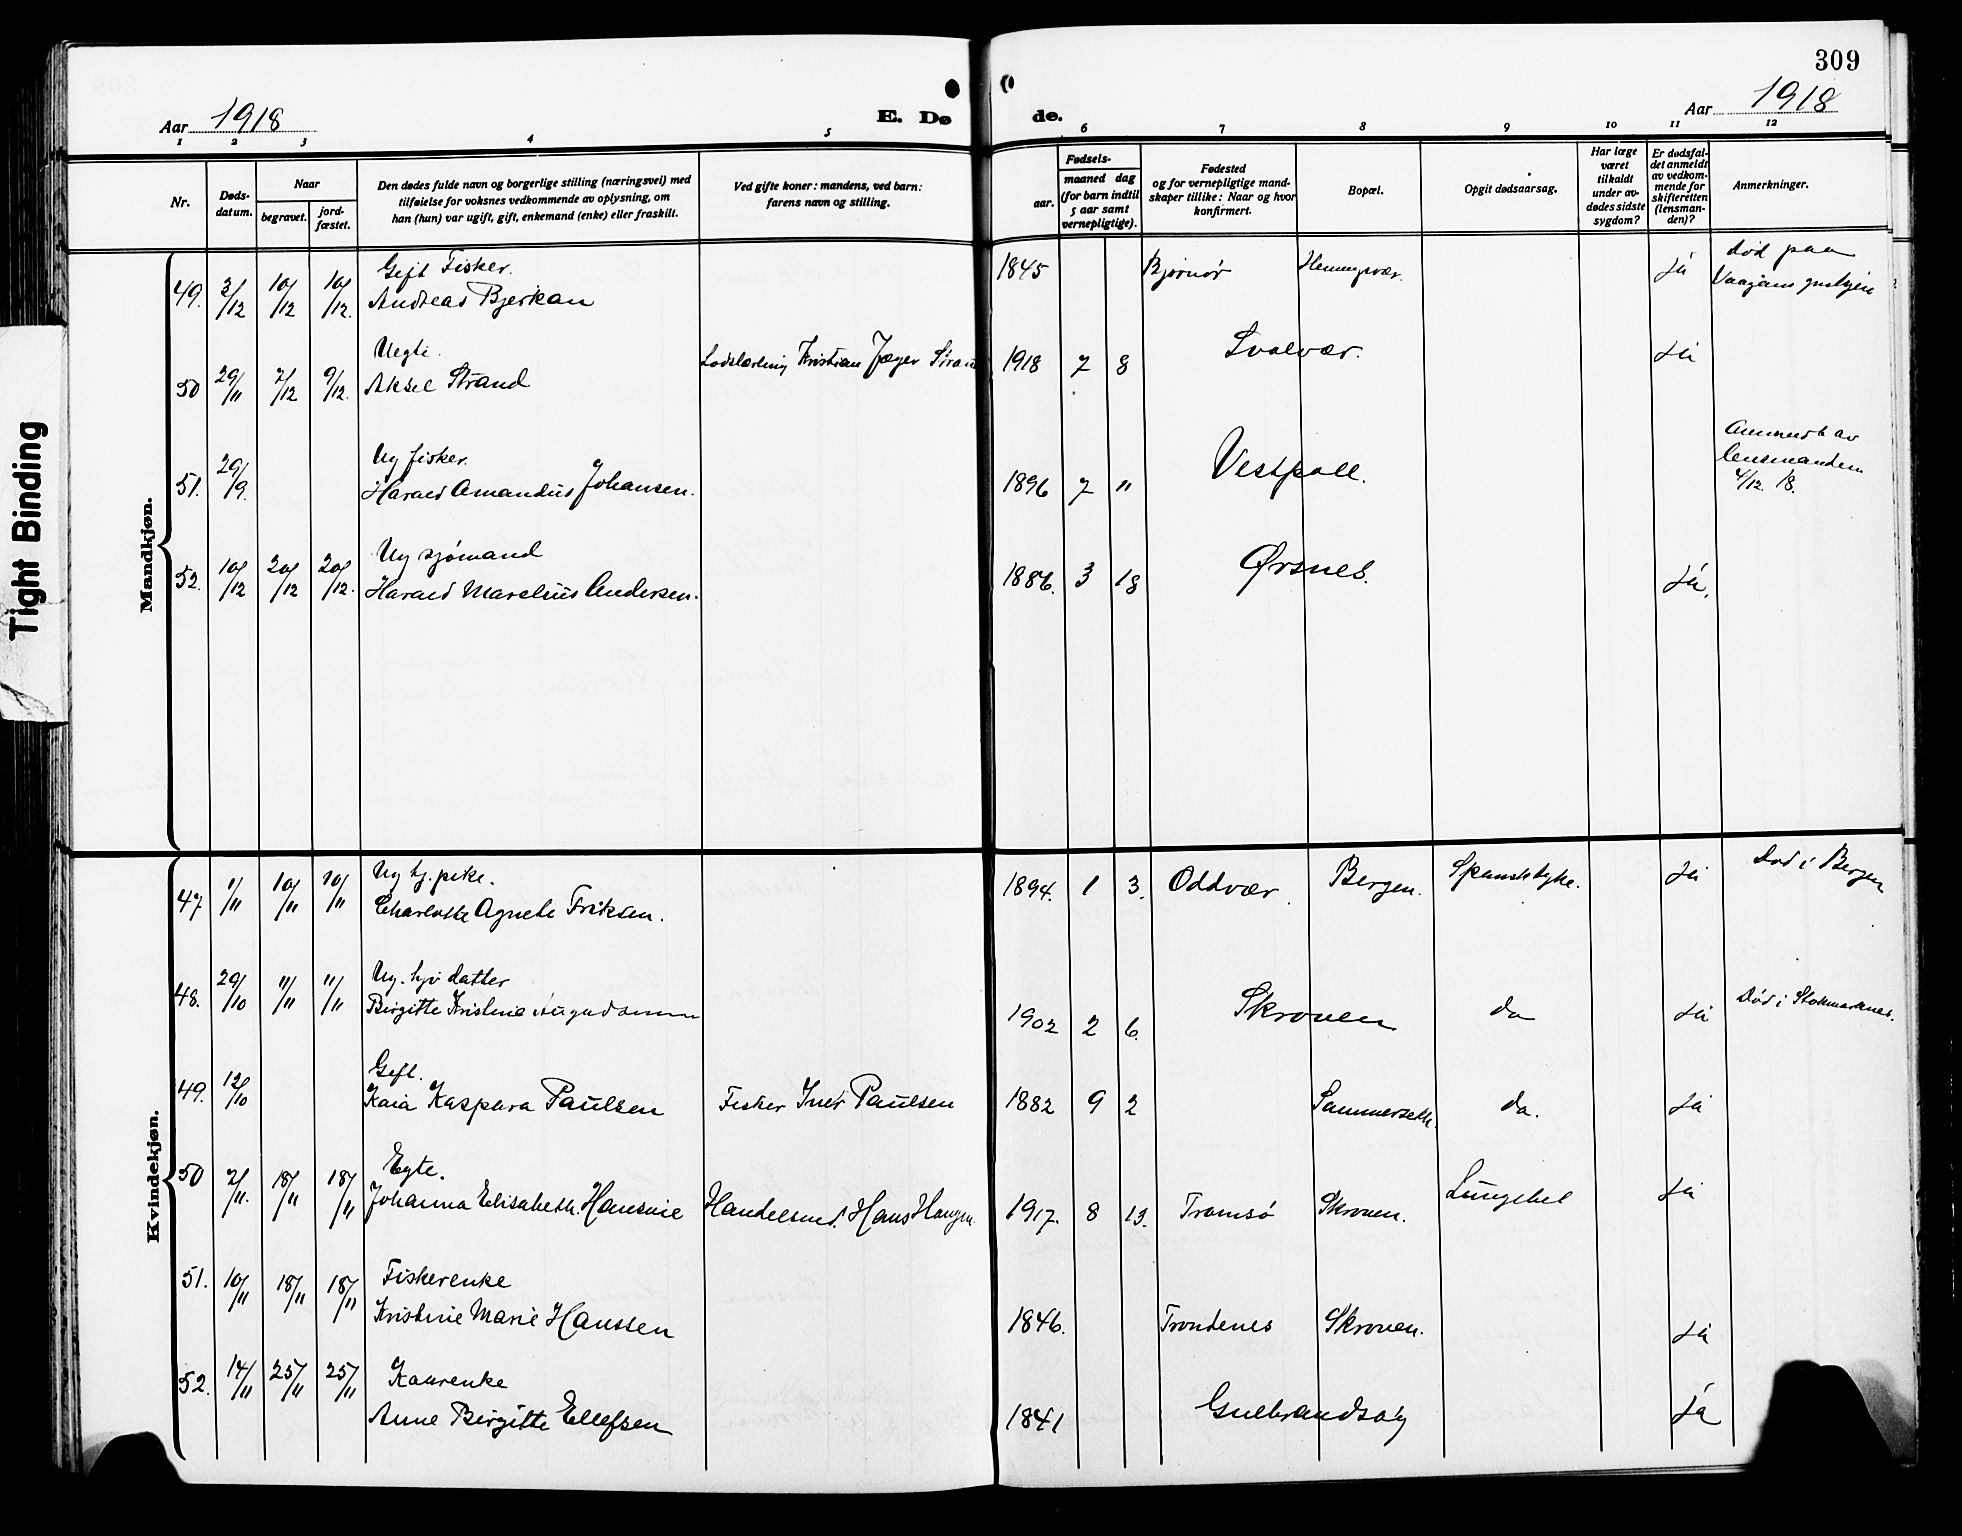 309
Aar 1918
E. Dø
de.
Aar 1918
1 2 3 4 5 6 7 8 9 10 11 12
Nr.
Døds-
datum.
Naar
begravet.
jord-
fæstet.
Den dødes fulde navn og borgerlige stilling (næringsvei) med
tilføielse for voksnes vedkommende av oplysning, om
han (hun) var ugift, gift, enkemand (enke) eller fraskilt.
Ved gifte koner: mandens, ved barn:
farens navn og stilling.
Fødsels-
aar.
maaned dag
(for barn indtil
5 aar samt
vernepligtige).
Fødested
og for vernepligtige mand-
skaper tillike: Naar og hvor
konfirmert.
Bopæl.
Opgit dødsaarsag.
Har læge
været
tilkaldt
under av-
dødes sidste
sygdom?
Er dødsfal-
det anmeldt
av vedkom-
mende for
skifteretten
(lensman-
den)?
Anmerkninger.
Tight Binding
Mandkjøn.
Gift Fisker.
49. 3/12 10/12 10/12. Andreas Bjerkan
1845 Bjørnør Henningsvær. Ja
Død paa
Uegte.
50 29/11 7/12 9/12. Aksel Strand
Lodslærling Kristian Jæger Stran
1918 7 8 Svolvær. Ja
Ug fisker.
51. 29/9. Harald Amandus Johansen.
1896 7 " Vestpoll.
av
lensmanden
4/12. 18.
Ug sjömand
52. 10/12 20/12 20/12. Harald Marelius Andersen.
1886. 3 18 Ørsnes. Ja.
Kvindekjøn.
Ug tj. pike.
47 1/11 10/11 10/11 Charlotte Agnete Friksen.
1894. 1 3. Oddvær Bergen. Spansksyke. Ja Død i Bergen
Ug. hjv datter
48. 29/10 11/11 11/11 Birgitte Kristine
1902 2 6. Skroven do Ja Död i Stokmarknes.
Gift.
49. 12/10 Kaia Kaspara Paulsen Fisker Iver Paulsen
1882 9 2 Sammerseth. do. Ja
Egte.
50 2/11. 18/11 18/11 Johanna Elisabeth Hansine Handelsmd. Hans Haugen
1917. 8 13. Tromsö Skroven. Ja
Fiskerenke
51. 10/11 18/11 18/11 Kristine Marie Hanssen
1846. Trondenes Skroven. Ja
Kaarenke
52. 14/11 25/11 25/11 Anne Birgitte Ellefsen
1841 Gulbrandsöy Ja